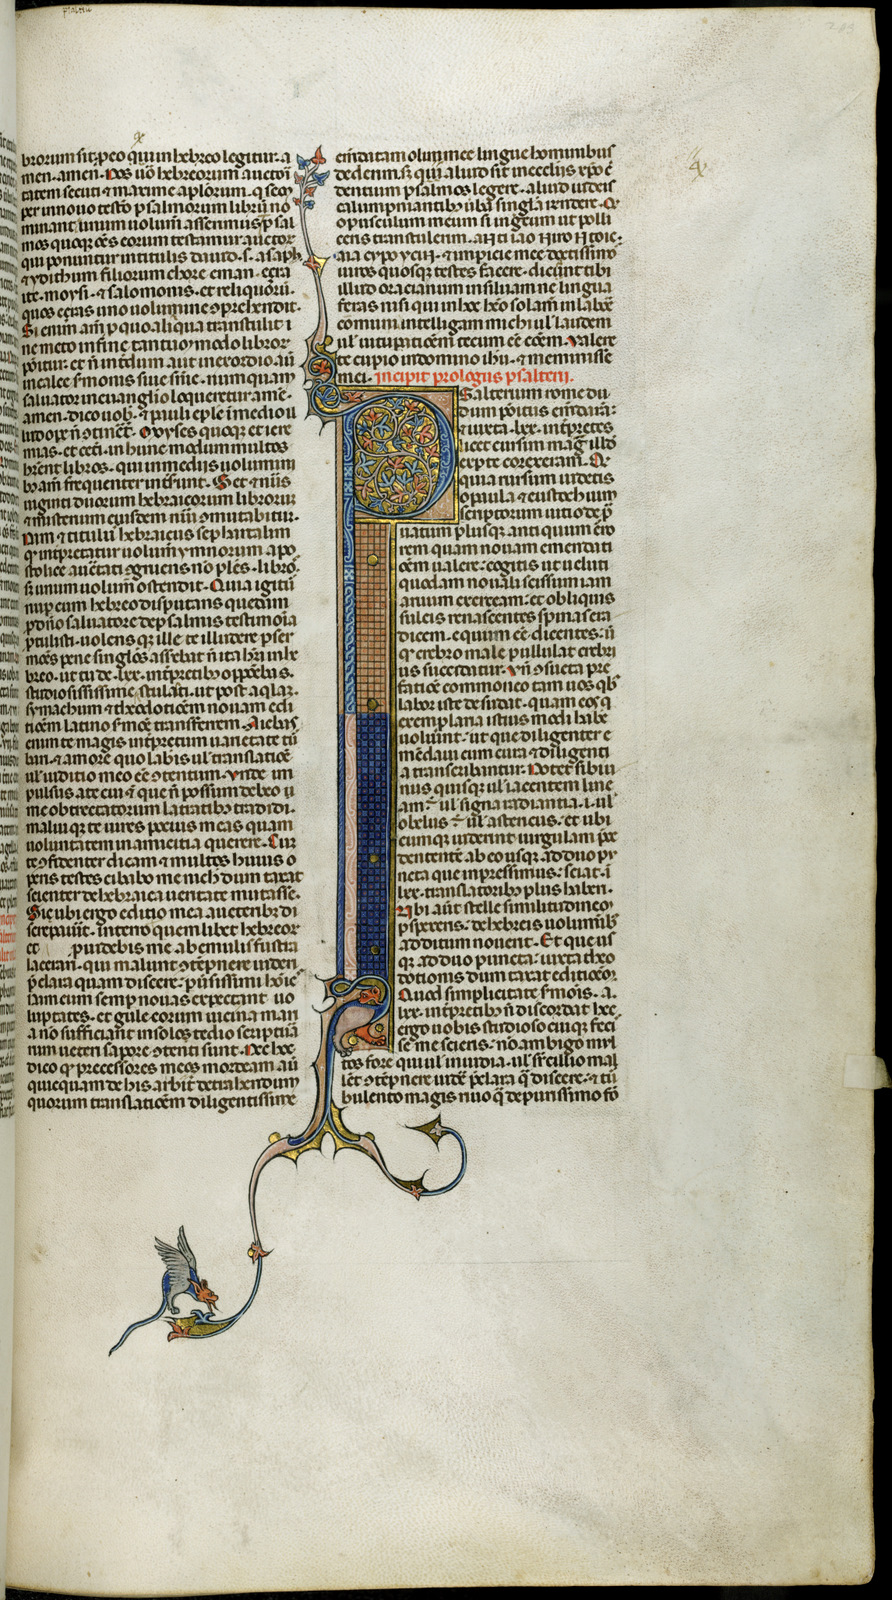 brorum sit: p eo qui in hebreo legitur. a
men. amen. Nos uo hebreorum auctori
tatem secuti & maxime aplorum. q semp
per in nouo testo psalmorum libru no
minant. unum uolum asserimus. psal
mos quoqꝫ oes eorum testamur auctor
qui ponuntur in titulis dauid. s. asaph.
& ydithum filiorum chore eman. ezra
ite. moysi. & salomonis. et reliquoru.
quos ezras uno uolumine cprehendit.
Si enim am p quo aliqua transtulit i
ne meto in fine tantu modo libror
ponitur. et n interdum aut in exordio au
in calce smonis siue sine. nunquam
saluator in euanglio loqueretur ame.
amen. dico uob. & pauli eple i medio il
lud ope n otinet. Moyses quoqꝫ et iere
mias. et ceti. in hunc modum multos
hrent libros. qui in mediis uolumini
bꝫ am frequenter inserunt. Set & nus
uiginti duorum hebraicorum libroruꝫ
& misterium eiusdem nui omutabitur.
Nam & titulus hebraicus sephar tallim
q intpretatur uolum ymnorum apo
stolice aucetati ogruens no ples. libros
sꝫ unum uolum ostendit. Quia igitur
nup cum hebreo disputans quedam
p dno saluatore de psalmis testimoia
ptulisti. uolens qꝫ ille te illudere p ser
mones pene singlos asserebat n ita hri in he
breo. ut tu de. lxx. intpretibꝫ opponebas.
studiosissime stulasti. ut post aqlaꝫ.
symachum & theodoticem nouam edi
ticem latino smoe transferrem. Aiebas
enim te magis intpretum uarietate tur
bari. & amore quo labis ul translatioe
ul iuditio meo ee otentum. Vnde im
pulsus a te cui & que n possum debeo ii
me obtrectatorum latratibꝫ tradidi.
malui qꝫ te uires pocius meas quam
uoluntatem in amicitia querere. Cer
te ofidenter dicam & multos huius o
peris testes citabo me nichil dum taxat
scienter de hebraica ueritate mutasse.
Sic ubi ergo editio mea a ueteribꝫ di
screpauit. interro quem libet hebreor
et puidebis me ab emulis frustra
lacerari. qui malunt otempnere uideri
pclara quam discere. puersissimi hoie
Nam cum semp nouas expectant uo
luptates. et gule eorum uicina mari
a no sufficiant. in solo studio scripturaꝫ
rum ueteri sapore otenti sunt. Nec hec
dico qꝫ precessores meos mordeam aut
quicquam de his arbitrer detrahendum
quorum translatioem diligentissime
emdatam olim mee lingue hominibus
dederim. sꝫ qui aliud sit in ecclis xpo c
dentium psalmos legere. aliud iudeis
calumpniantibꝫ uba singla rndere. Qꝫ
opusculum meum si in grecum ut polli
ceris transtulerim.
uiros quosque testes facere. dicent tibi
illud oracianum in siluam ne lingua
feras nisi qui in hoc heo solam in labore
comuni intelligam michi ul laudem
ul uituperationem tecum ee coem. Valere
te cupio in domino ihu. & meminisse
mei. Incipit prologus psalterii.
Psalterium rome du
dum positus emdaram
& iuxta. lxx. intpretes
licet cursim mag illd
ex pte correxeram. Qꝫ
quia rursum uidetis
o paula & eustochium
scriptorum uitio depꝫ
uatum plusqꝫ antiquum erro
rem quam nouam emendati
oem ualere: cogitis ut ueluti
quodam nouali scissum iam
aruum exerceam: et obliquis
sulcis renascentes spinas era
dicem. equum ee dicentes: ut
qꝫ crebro male pullulat crebri
us succidatur. Vn osueta pre
fatioe commoneo tam uos qbꝫ
labor iste desudat. quam eos q
exemplaria istius modi habe
uoluint. ut que diligenter e
mendaui cum cura & diligenti
a transcribantur. Notet sibi u
nus quisqꝫ ul iacentem line
am ÷ ul signa radiantia. i. ul
obelus ÷ ul astericus. et ubi
cumqꝫ uiderint uirgulam pre
cedentem ab eo usqꝫ ad duo py
neta que inpressimus: sciat. i
lxx. translatoribꝫ plus haberi.
Vbi aut stelle similitudinem
pspexerit: de hebreis uoluminibꝫ
additum nouerit. Et que us
qꝫ ad duo puncta: iuxta theo
dotionis dum taxat editioem.
Quod simplicitate smois. a.
lxx. intpretibꝫ n discordat hec
ergo uobis studioso cuiqꝫ feci
se me sciens: no ambigo mul
tos fore qui ul inuidia. ul supcillio mal
let otempnere uideri pclara q discere. & tur
bulento magis riuo q de purissimo fo